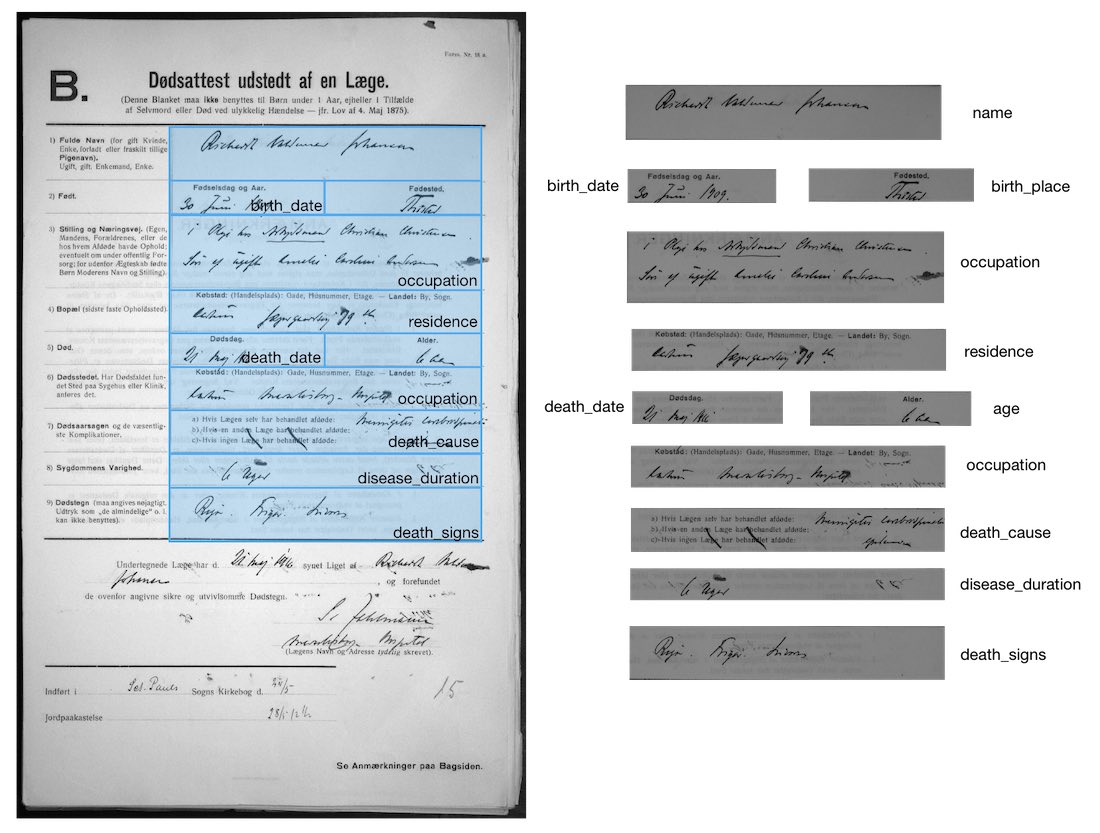 Form. Nr. 18 a.
B.
Dødsattest udstedt af en Læge.
(Denne Blanket maa ikke benyttes til Børn under 1 Aar, ejheller i Tilfælde
af Selvmord eller Død ved ulykkelig Hændelse — jfr. Lov af 4. Maj 1875).
1) Fulde Navn (for gift Kvinde,
Enke, forladt eller fraskilt tillige
Pigenavn).
Ugift, gift, Enkemand, Enke.
Richardt Valdemar Johansen
2) Født.
Fødselsdag og Aar.
30 Juni
birth_date
Fødested.
Thisted
3) Stilling og Næringsvej. (Egen,
Mandens, Forældrenes, eller de
hos hvem Afdøde havde Ophold;
eventuelt om under offentlig For-
sorg; for udenfor Ægteskab fødte
Børn Moderens Navn og Stilling).
i Pleje hos Christian Christensen
Søn af ugift Amalie Caroline Andersen
occupation
4) Bopæl (sidste faste Opholdssted).
Købstad: (Handelsplads): Gade, Husnummer, Etage. — Landet: By, Sogn.
79
residence
5) Død.
Dødsdag.
21 Maj
death_date
Alder.
6 Aar
6) Dødsstedet. Har Dødsfaldet fun-
det Sted paa Sygehus eller Klinik,
anføres det.
Købstad: (Handelsplads): Gade, Husnummer, Etage. — Landet: By, Sogn.
Marselisborg Hospital
occupation
7) Dødsaarsagen og de væsentlig-
ste Komplikationer.
a) Hvis Lægen selv har behandlet afdøde:
b) Hvis en anden Læge har behandlet afdøde:
c) Hvis ingen Læge har behandlet afdøde:
Meningitis cerebrospinalis
death_cause
8) Sygdommens Varighed.
6 Uger
disease_duration
9) Dødstegn (maa angives nøjagtigt.
Udtryk som „de almindelige" o. l.
kan ikke benyttes).
Rigor.
death_signs
Undertegnede Læge har d. 21 Maj 1916 synet Liget af Richardt
Johansen , og forefundet
de ovenfor angivne sikre og utvivlsomme Dødstegn.
Marselisborg Hospital
(Lægens Navn og Adresse tydelig skrevet).
Indført i Sct. Pauls Sogns Kirkebog d. 24/5
15
Jordpaakastelse
Se Anmærkninger paa Bagsiden.
Richardt Valdemar Johansen
name
birth_date
Fødselsdag og Aar.
30 Juni 1909.
Fødested.
Thisted
birth_place
i Pleje hos Christian Christensen
Søn af ugift Amalie Caroline Andersen
occupation
Købstad: (Handelsplads): Gade, Husnummer, Etage. — Landet: By, Sogn.
79
residence
death_date
Dødsdag.
21 Maj
Alder.
6 Aar
age
Købstad: (Handelsplads): Gade, Husnummer, Etage. — Landet: By, Sogn.
Marselisborg Hospital
occupation
a) Hvis Lægen selv har behandlet afdøde:
b) Hvis en anden Læge har behandlet afdøde:
c) Hvis ingen Læge har behandlet afdøde:
Meningitis cerebrospinalis
epidemica
death_cause
6 Uger
disease_duration
Rigor.
death_signs